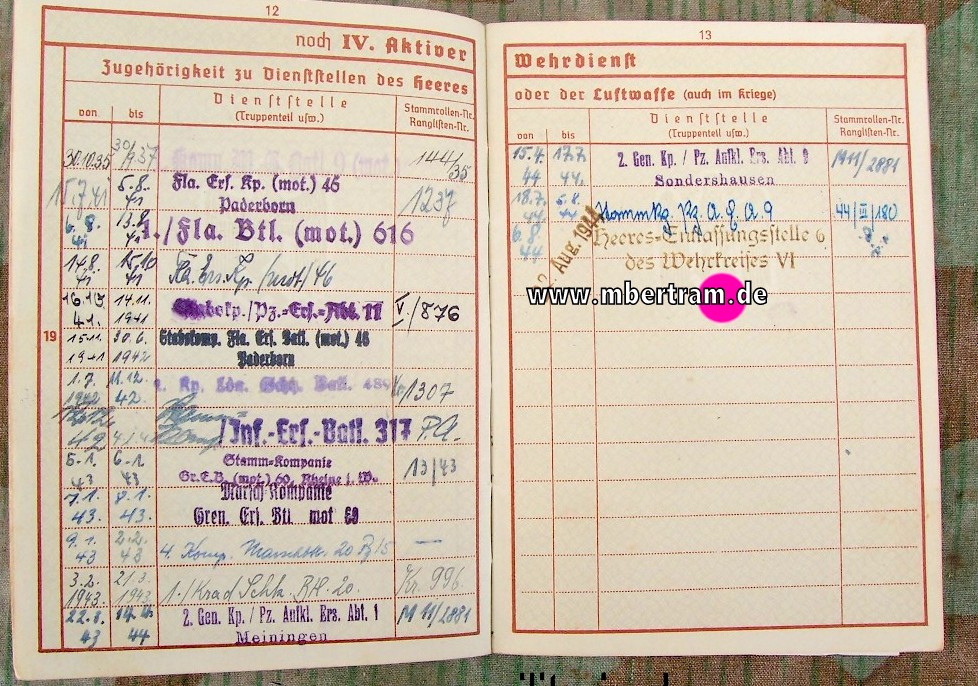 12
noch IV. Aktiver
Zugehörigkeit zu Dienststellen des Heeres
von bis Dienststelle (Truppenteil usw.) Stammrollen-Nr. Ranglisten-Nr.
30.10.35 144/35
15.7.41 5.8.41 Fla. Ers. Kp. (mot.) 46 Paderborn 1237
6.8.41 13.8.41 /Fla. Btl. (mot.) 616
14.8.41 15.10.41 Fla. Ers. Kp. /mot/ 46
14.11.1941 /Pz.-Ers.-Abt. 11 V/876
19
15.11.1941 30.6.1942 Stabskomp. Fla. Ers. Batl. (mot.) 46 Paderborn
1.7.1942 11.12.42. Kp. Lds. Schtz. Batl. /1307
/Inf.-Ers.-Batl. 317 P.A.
5.1.43 6.1.43 Stamm-Kompanie Gr.E.B. (mot.) 60, Rheine i. W. 13/43
7.1.43. 8.1.43. Marsch Kompanie Gren. Ers. Btl mot 60
9.1.43 2.2.43 4. Komp. 20 —
3.2.1943 21.3.1943 1./Krad Schtz. Btl. 20. Kr. 996
22.3.43 14.4.44 2. Gen. Kp. / Pz. Aufkl. Ers. Abt. 1 Meiningen M 11/2881
13
Wehrdienst
oder der Luftwaffe (auch im Kriege)
von bis Dienststelle (Truppenteil usw.) Stammrollen-Nr. Ranglisten-Nr.
15.4.44 17.7.44. 2. Gen. Kp. / Pz. Aufkl. Ers. Abt. 9 Sondershausen M11/2881
18.7.44 5.8.44 Stammkp. Pz. A. E. A. 9 44/III/180
6.8.44 Aug. 1944 Heeres-Entlassungsstelle 6 des Wehrkreises VI
www.mbertram.de